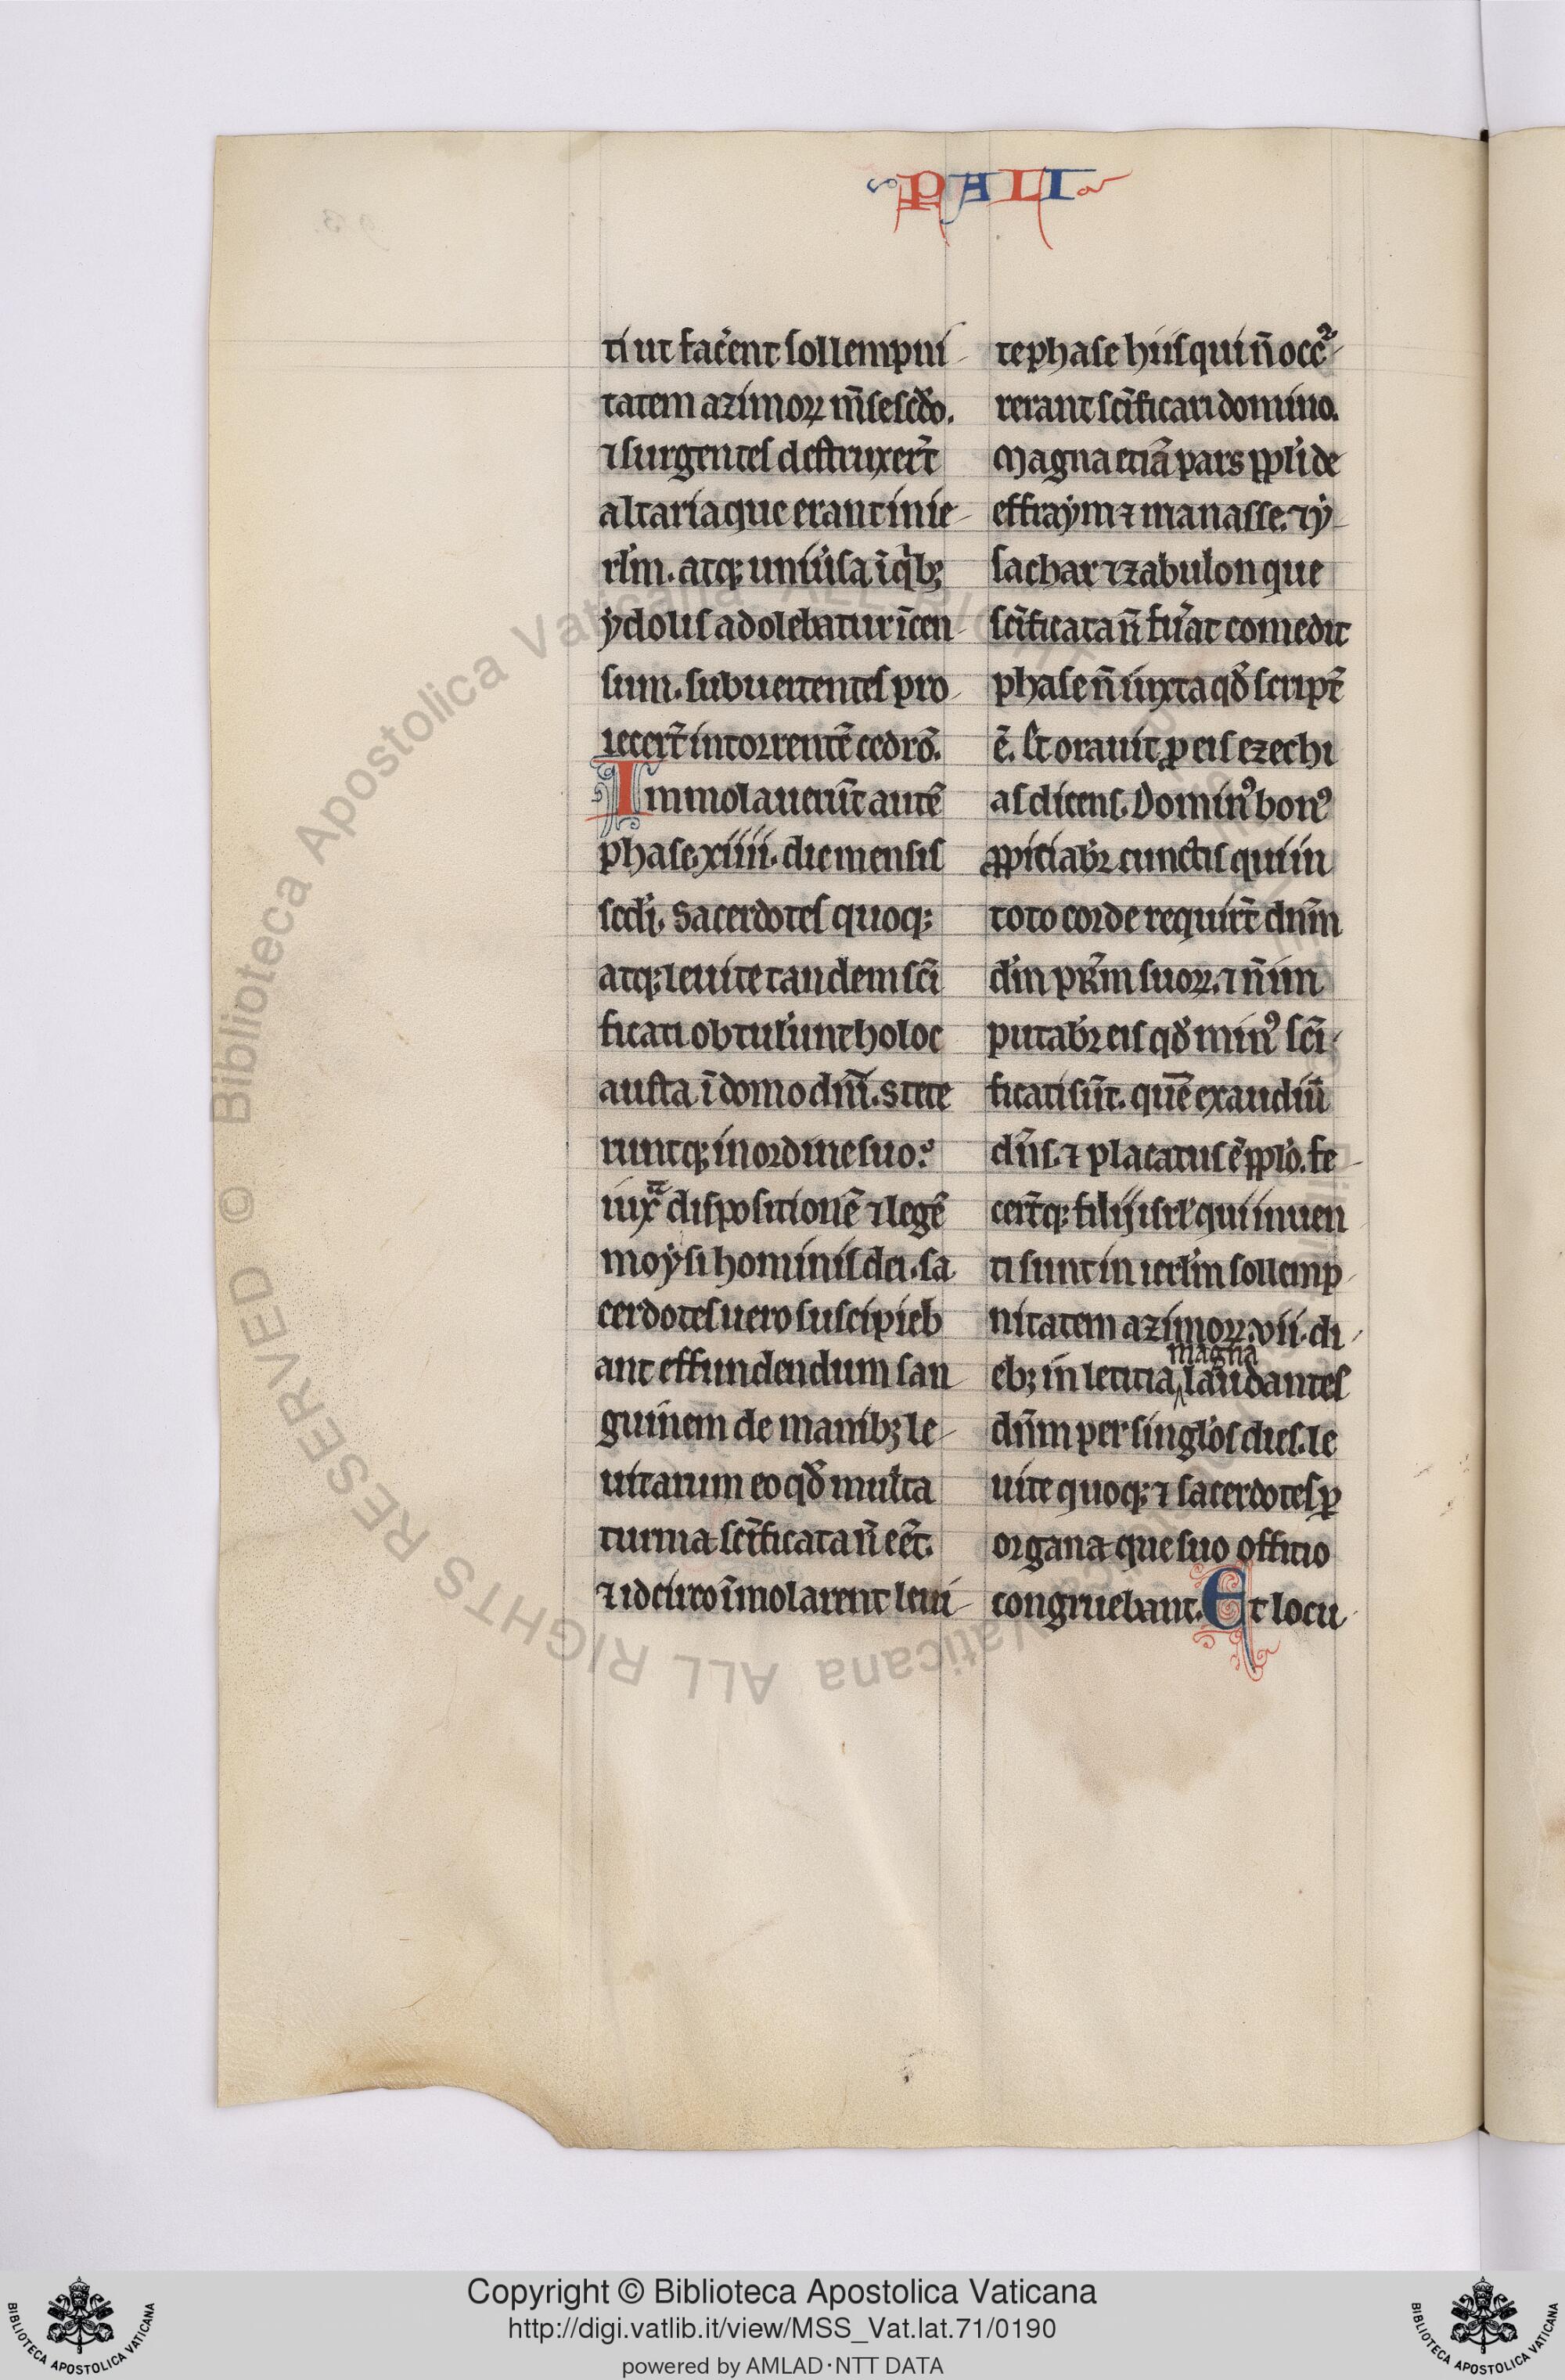 PALI
ti ut fac̄ent sollempni-
tatem azimoꝝ m̄se sc̄do.
⁊ surgentes destruxer̄t
altaria que erant in ie-
rl̄m. atqꝫ uniu̾sa ī qͥbꝫ
ẏdolis adolebatur īcen-
sum. subuertentes pro-
iecer̄t in torrentē cedrō.
Immolauerūt autē
phase xiiii. die mensis
sc̄di. Sacerdotes quoqꝫ
atqꝫ leuite tandem sc̄i
ficati obtul̾unt holoc
austa ī domo dn̄i. Stete
runtqꝫ in ordine suo.
iuxͣ dispositionē ⁊ legē
moẏsi hominis dei. sa
cerdotes uero suscipieb
ant effundendum san-
guinem de manibꝫ le-
uitarum eo qđ multa
turma sc̄ificata n̄ eēt.
⁊ idcirco īmolarent leui-
te phase hiis qui n̄ occ̾-
rerant sc̄ificari domino.
Magna etiā pars ppl̾i de
effraẏm ⁊ manasse. ⁊ ẏ-
sachar ⁊ zabulon que
sc̄ificata n̄ fu̾at comedit
phase n̄ iuxta qđ scriptū
ē. Et orauit ꝓ eis ezechi
as dicens. Dominꝰ bonꝰ
ꝓpitiabr̄ cunctis qui in
toto corde requirūt dn̄m
dm̄ pr̄m suoꝝ. ⁊ n̄ im
putabr̄ eis qđ minꝰ sc̄i-
ficati sūt. quē exaudiuit
dn̄s. ⁊ placatus ē ppl̾o. fe-
cer̄tqꝫ filij isrl̾ qui inuen
ti sunt in ierl̄m sollemp-
nitatem azimoꝝ. vii. di-
magna
ebꝫ in letitia ‸ laudantes
dn̄m per singl̾os dies. le
uite quoqꝫ ⁊ sacerdotes ꝑ
organa que suo officio
congruebant. Et locu-
Copyright © Biblioteca Apostolica Vaticana
http://digi.vatlib.it/view/MSS_Vat.lat.71/0190
powered by AMLAD·NTT DATA
BIBLIOTECA APOSTOLICA VATICANA
BIBLIOTECA APOSTOLICA VATICANA